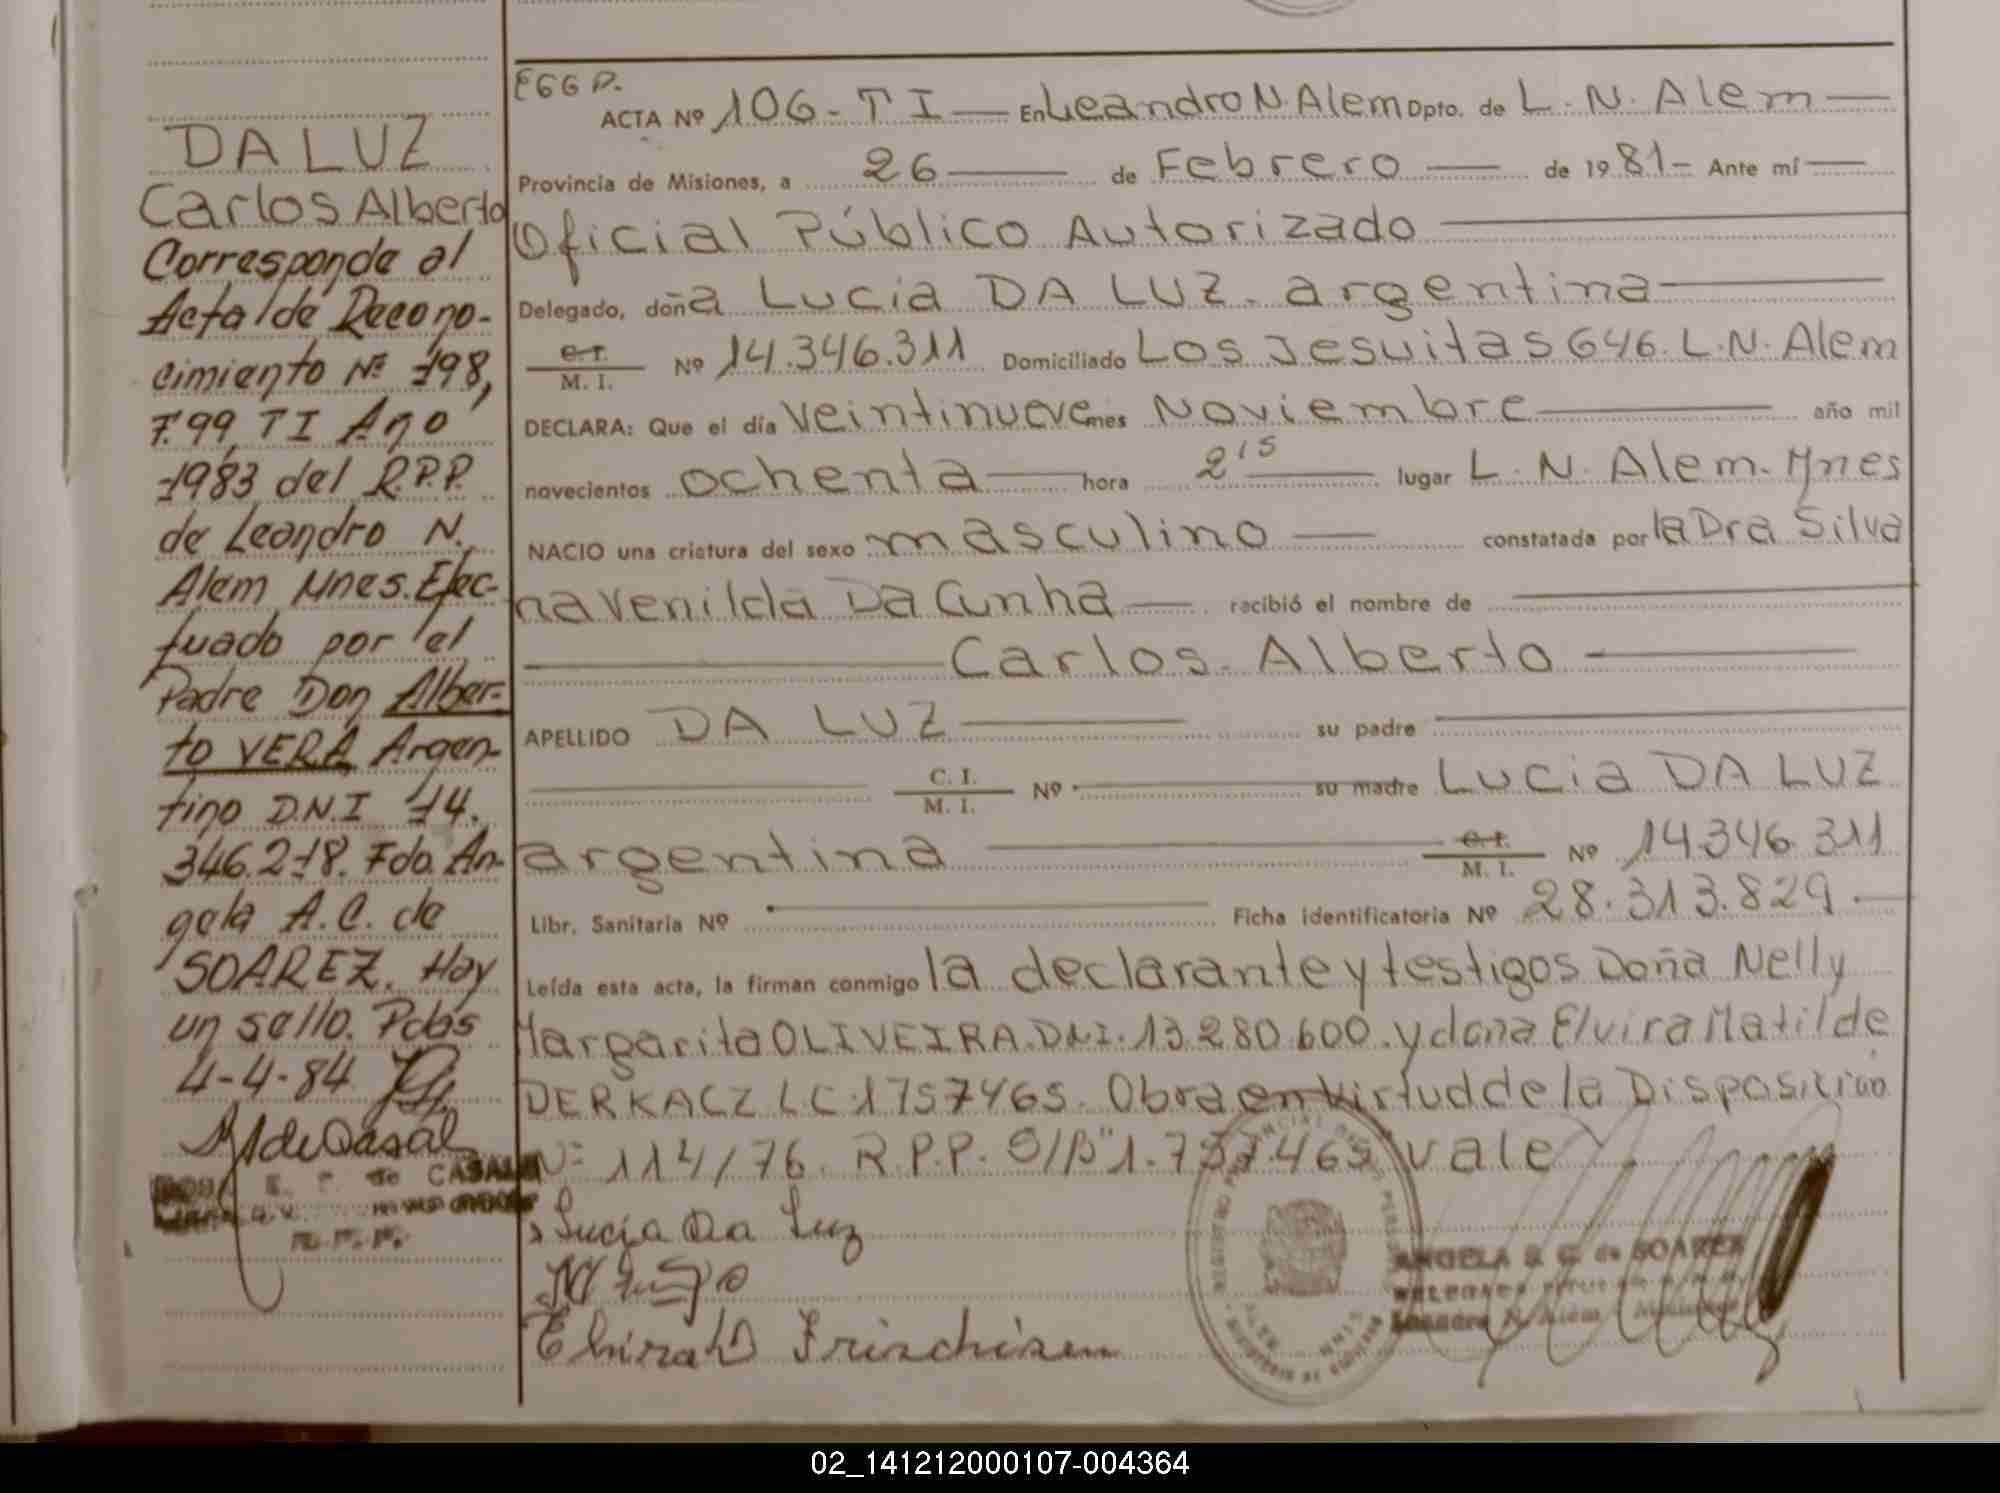 DA LUZ
Carlos Alberto
Corresponde al
Acta de Recono-
cimiento Nº 198,
F.99, TI Año
1983 del R.P.P.
de Leandro N.
Alem Mnes. Efec-
tuado por el
Padre Don Alber-
to VERA Argen-
tino D.N.I 14.
346.218. Fdo. An-
gela A.C. de
SOAREZ. Hay
un sello. Pdas
4-4-84
de CASAL
R.P.P.
EGGD.
ACTA Nº 106-TI — En Leandro N. Alem Dpto. de L. N. Alem —
Provincia de Misiones, a 26 — de Febrero — de 1981- Ante mí —
Oficial Público Autorizado
Delegado, doña Lucia DA LUZ. argentina
C.I. M. I. Nº 14.346.311 Domiciliado Los Jesuitas 646. L.N. Alem
DECLARA: Que el día veintinueve mes Noviembre — año mil
novecientos ochenta — hora 2 15 — lugar L. N. Alem. Mnes
NACIO una criatura del sexo masculino — constatada por la Dra Silva
na Venilda Da Cunha — recibió el nombre de
Carlos Alberto
APELLIDO DA LUZ — su padre
C. I. M. I. Nº su madre Lucia DA LUZ
argentina C.I. M. I. Nº 14346.311
Libr. Sanitaria Nº Ficha identificatoria Nº 28.313.829.—
Leída esta acta, la firman conmigo la declarante y testigos Doña Nelly
Margarita OLIVEIRA. DNI. 13.280.600. y doña Elvira Matilde
DERKACZ LC.1757465. Obra en virtud de la Disposición
Nº 114/76. R.P.P. S/B "1.757.465" vale
Lucia Da Luz
Elvira D Frischisen
ANGELA A. C. de SOAREZ
Leandro N. Alem
02_141212000107-004364